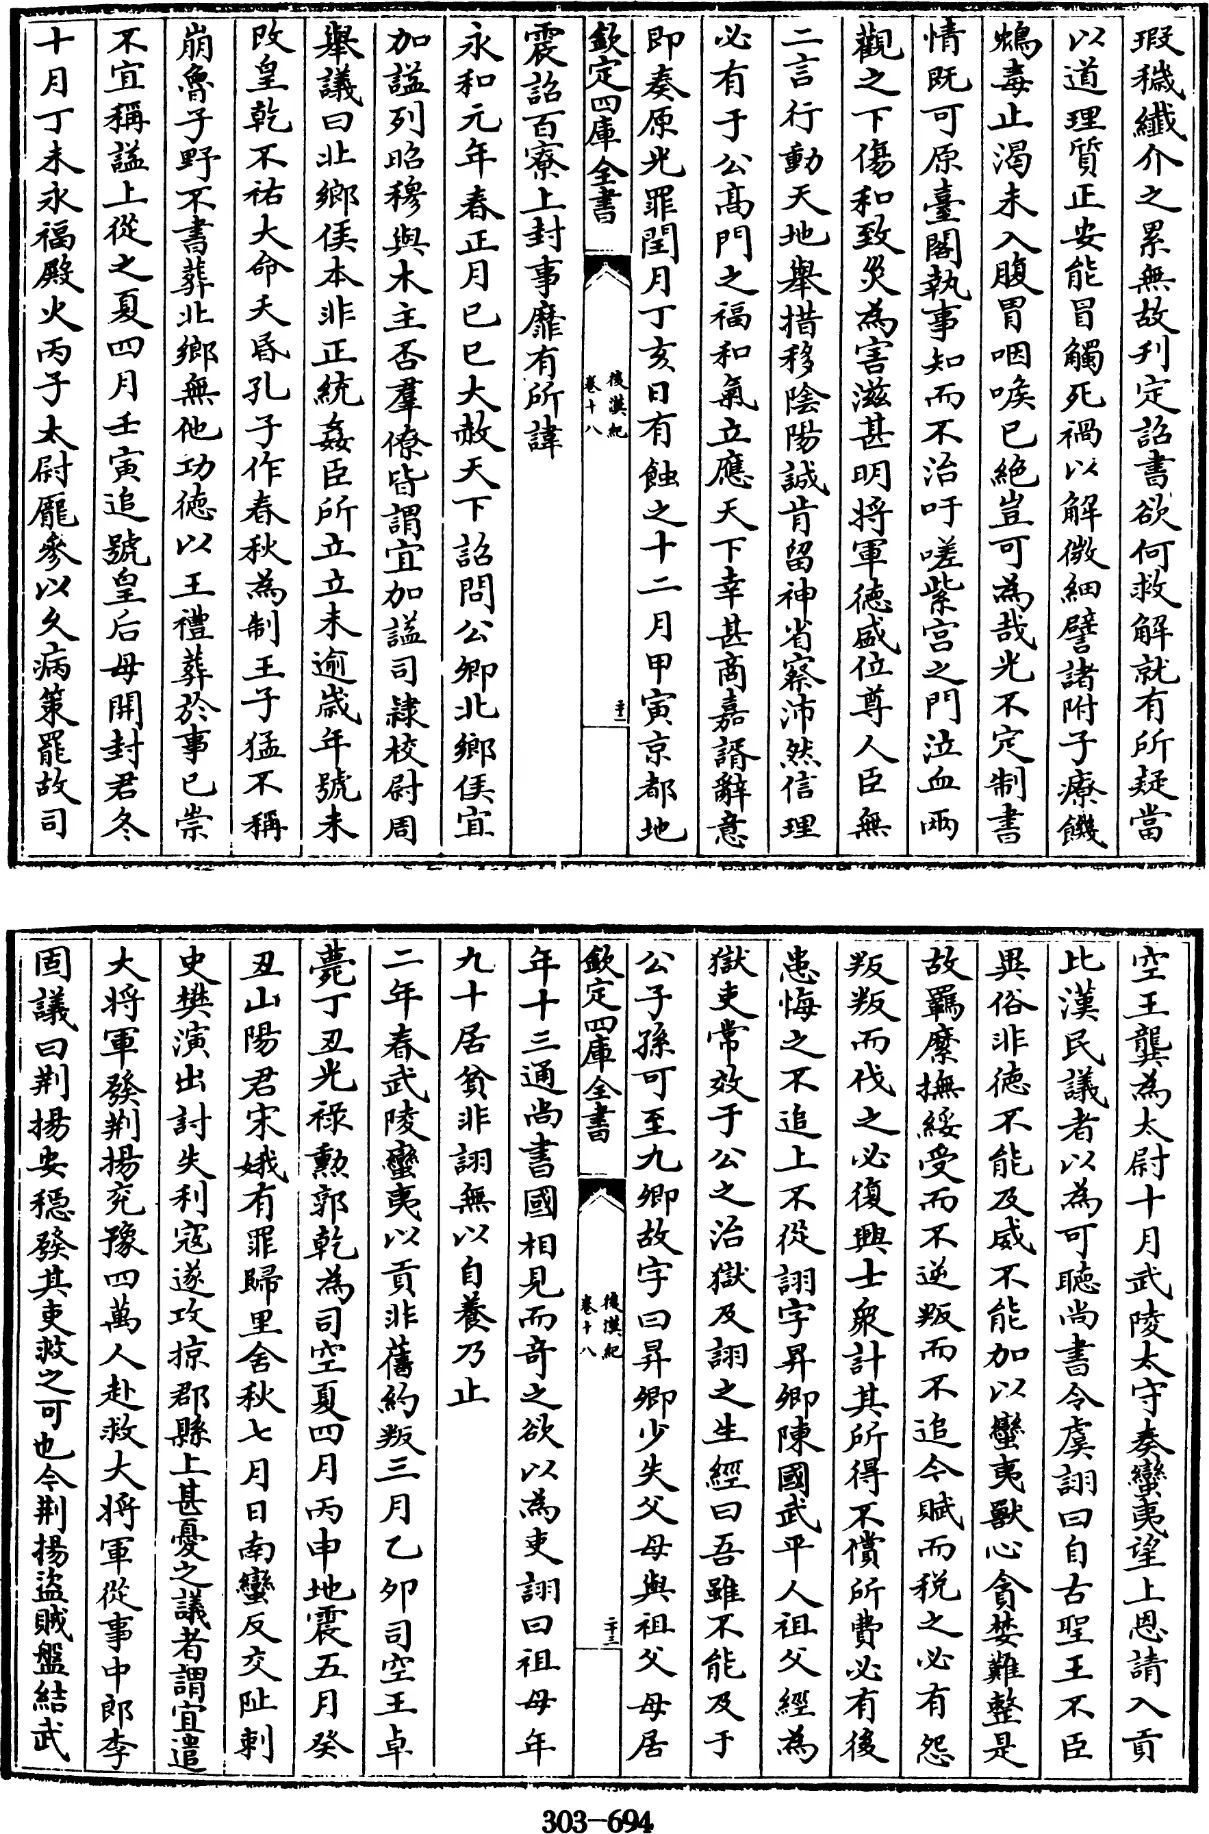 瑕穢纖介之累無故刋定詔書欲何救解就有所疑當
以道理質正安能冒觸死禍以解微細譬諸附子療饑
鴆毒止渴未入腹胃咽喉已絶豈可為哉光不定制書
情既可原臺閣執事知而不治吁嗟紫宫之門泣血兩
觀之下傷和致災為害滋甚明将軍徳盛位尊人臣無
二言行動天地舉措移陰陽誠肯留神省察沛然信理
必有于公髙門之福和氣立應天下幸甚商嘉諝辭意
即奏原光罪閏月丁亥日有蝕之十二月甲寅京都地
欽定四庫全書
後漢紀
卷十八
二十二
震詔百寮上封事靡有所諱
永和元年春正月已巳大赦天下詔問公卿北鄉侯宜
加謚列昭穆與木主否羣僚皆謂宜加謚司𨽻校尉周
舉議曰北鄉侯本非正統姦臣所立立未逾嵗年號未
改皇乾不祐大命夭昏孔子作春秋為制王子猛不稱
崩魯子野不書葬北鄉無他功徳以王禮葬於事已崇
不宜稱謚上從之夏四月壬寅追號皇后母開封君冬
十月丁未永福殿火丙子太尉龎參以久病策罷故司
空王龔為太尉十月武陵太守奏蠻夷望上恩請入貢
比漢民議者以為可聴尚書令虞詡曰自古聖王不臣
異俗非徳不能及威不能加以蠻夷獸心貪婪難整是
故羈縻撫綏受而不逆叛而不追今賦而税之必有怨
叛叛而伐之必復興士衆計其所得不償所費必有後
患悔之不追上不從詡字昇卿陳國武平人祖父經為
獄吏常效于公之治獄及詡之生經曰吾雖不能及于
公子孫可至九卿故字曰昇卿少失父母與祖父母居
欽定四庫全書
後漢紀
卷十八
二十三
年十三通尚書國相見而竒之欲以為吏詡曰祖母年
九十居貧非詡無以自養乃止
二年春武陵蠻夷以貢非舊約叛三月乙夘司空王卓
薨丁丑光禄勲郭乾為司空夏四月丙申地震五月癸
丑山陽君宋娥有罪歸里舍秋七月日南蠻反交阯刺
史樊演出討失利寇遂攻掠郡縣上甚憂之議者謂宜遣
大將軍發荆揚兖豫四萬人赴救大將軍從事中郎李
固議曰荆揚安穏發其吏救之可也今荆揚盜賊盤結武
303-694